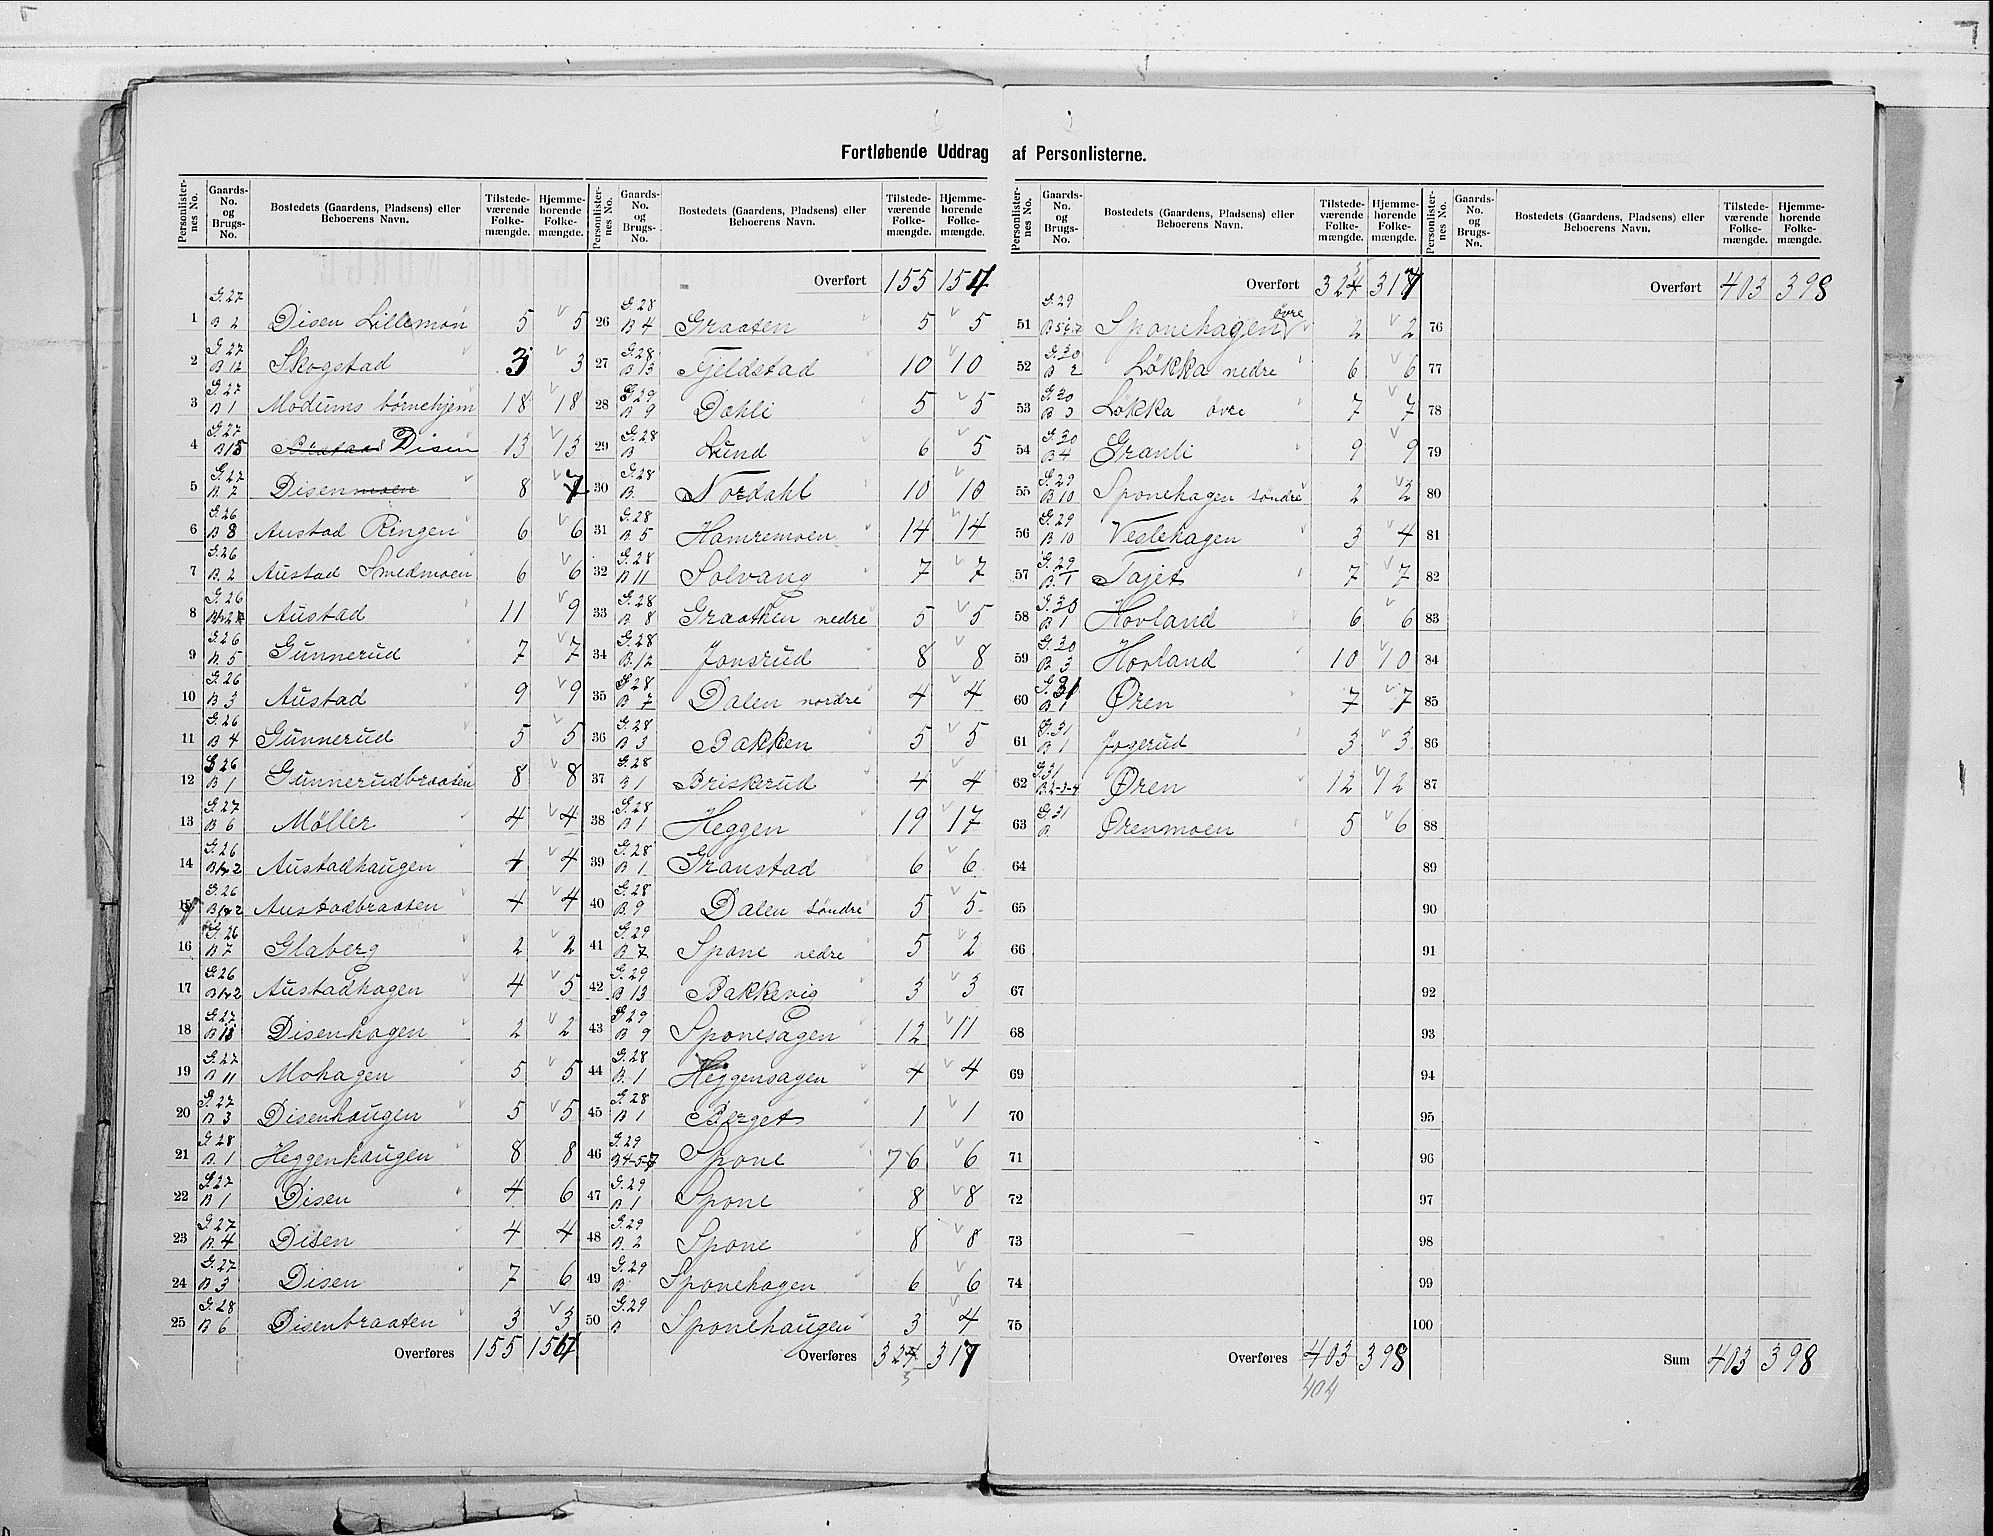 Fortløbende Uddrag af Personlisterne.
Personlister-nes No. | Gaards-No. og Brugs-No. | Bostedets (Gaardens, Pladsens) eller Beboerens Navn. | Tilstede-værende Folke-mængde. | Hjemme-hørende Folke-mængde.
1 | G. 27 B 2 | Disen Lillemon | 5 | 5
2 | G. 27 B 12 | Skogstad | 3 | 3
3 | G. 27 B 1 | Modums børnehjem | 18 | 18
4 | G. 27 B 15 | Disen | 13 | 13
5 | G. 27 B. 7 | Disenmoen | 8 | 7
6 | G. 26 B 8 | Austad Ringen | 6 | 6
7 | G. 26 B. 2 | Austad Smedmoen | 6 | 6
8 | G. 26 | Austad | 11 | 9
9 | G. 26 B. 5 | Gunnerud | 7 | 7
10 | G. 26 B 3 | Austad | 9 | 9
11 | G. 26 B 4 | Gunnerud | 5 | 5
12 | G. 26 B 1 | Gunnerudbraaten | 8 | 8
13 | G. 27 B 6 | Møller | 4 | 4
14 | G. 26 B 1&2 | Austadhaugen | 4 | 4
15 | G. 26 B 1&2 | Austadbraaten | 4 | 4
16 | G. 26 B 7 | Glaberg | 2 | 2
17 | G. 26 B 1&2 | Austadhagen | 4 | 5
18 | G. 27 | Disenhagen | 2 | 2
19 | G. 27 B 11 | Mohagen | 5 | 5
20 | G. 27 B 3 | Disenhaugen | 5 | 5
21 | G. 28 B. 1 | Heggenhaugen | 8 | 8
22 | G. 27 B 1 | Disen | 4 | 6
23 | G. 27 B. 4 | Disen | 4 | 4
24 | G. 27 B 3 | Disen | 7 | 6
25 | G. 28 B 6 | Disenbraaten | 3 | 3
Overføres | 155 | 154
Personlister-nes No. | Gaards-No. og Brugs-No. | Bostedets (Gaardens, Pladsens) eller Beboerens Navn. | Tilstede-værende Folke-mængde. | Hjemme-hørende Folke-mængde.
Overført | 155 | 154
26 | G. 28 B 4 | Graaten | 5 | 5
27 | G. 28 B 13 | Fjeldstad | 10 | 10
28 | G 29 B 9 | Dahli | 5 | 5
29 | G. 28 B | Lund | 6 | 5
30 | G. 28 B. | Nordahl | 10 | 10
31 | G. 28 B 5 | Hamremoen | 14 | 14
32 | G. 28 B 11 | Solvang | 7 | 7
33 | G. 28 B 8 | Graaten nedre | 5 | 5
34 | G. 28 B. 12 | Jonsrud | 8 | 8
35 | G. 28 B 7 | Dalen nordre | 4 | 4
36 | G. 28 B 3 | Bakken | 5 | 5
37 | G. 28 B 1 | Briskerud | 4 | 4
38 | G. 28 B 1 | Heggen | 19 | 17
39 | G. 28 B 1 | Granstad | 6 | 6
40 | G. 28 B. 9 | Dalen søndre | 5 | 5
41 | G. 29 B 7 | Spone nedre | 5 | 2
42 | G. 29 B 13 | Bakkevig | 3 | 3
43 | G 29 B 9 | Sponesagen | 12 | 11
44 | G. 28 B. 1 | Heggensagen | 4 | 4
45 | G. 28 B 1 | Berget | 1 | 1
46 | G. 29 B 4-5-7 | Spone | 76 | 6
47 | G. 29 B 1 | Spone | 8 | 8
48 | G. 29 B. 2 | Spone | 8 | 8
49 | G. 29 B | Sponehagen | 6 | 6
50 | G. 29 B | Sponehaugen | 3 | 4
Overføres | 324 | 317
3
Personlister-nes No. | Gaards-No. og Brugs-No. | Bostedets (Gaardens, Pladsens) eller Beboerens Navn. | Tilstede-værende Folke-mængde. | Hjemme-hørende Folke-mængde.
Overført | 324 | 317
51 | G. 29 B 5 6-7 | Sponehagen øvre | 2 | 2
52 | G. 30 B 2 | Løkka nedre | 6 | 6
53 | G. 30 B 3 | Løkka øvre | 7 | 7
54 | G. 30 B 4 | Granli | 9 | 9
55 | G. 29 B 10 | Sponehagen søndre | 2 | 2
56 | G. 29 B 10 | Veslehagen | 3 | 4
57 | G. 29 B. 1 | Tajet | 7 | 7
58 | G. 30 B 1 | Hovland | 6 | 6
59 | G. 30 B 3 | Hovland | 10 | 10
60 | G. 31 B 1 | Øren | 7 | 7
61 | G. 31 B 1 | Jogerud | 3 | 3
62 | G 31 B. 2-3-4 | Øren | 12 | 12
63 | G. 31 B | Ørenmoen | 5 | 6
64
65
66
67
68
69
70
71
72
73
74
75
Overføres | 403 | 398
404
Personlister-nes No. | Gaards-No. og Brugs-No. | Bostedets (Gaardens, Pladsens) eller Beboerens Navn. | Tilstede-værende Folke-mængde. | Hjemme-hørende Folke-mængde.
Overført | 403 | 398
76
77
78
79
80
81
82
83
84
85
86
87
88
89
90
91
92
93
94
95
96
97
98
99
100
Sum | 403 | 398